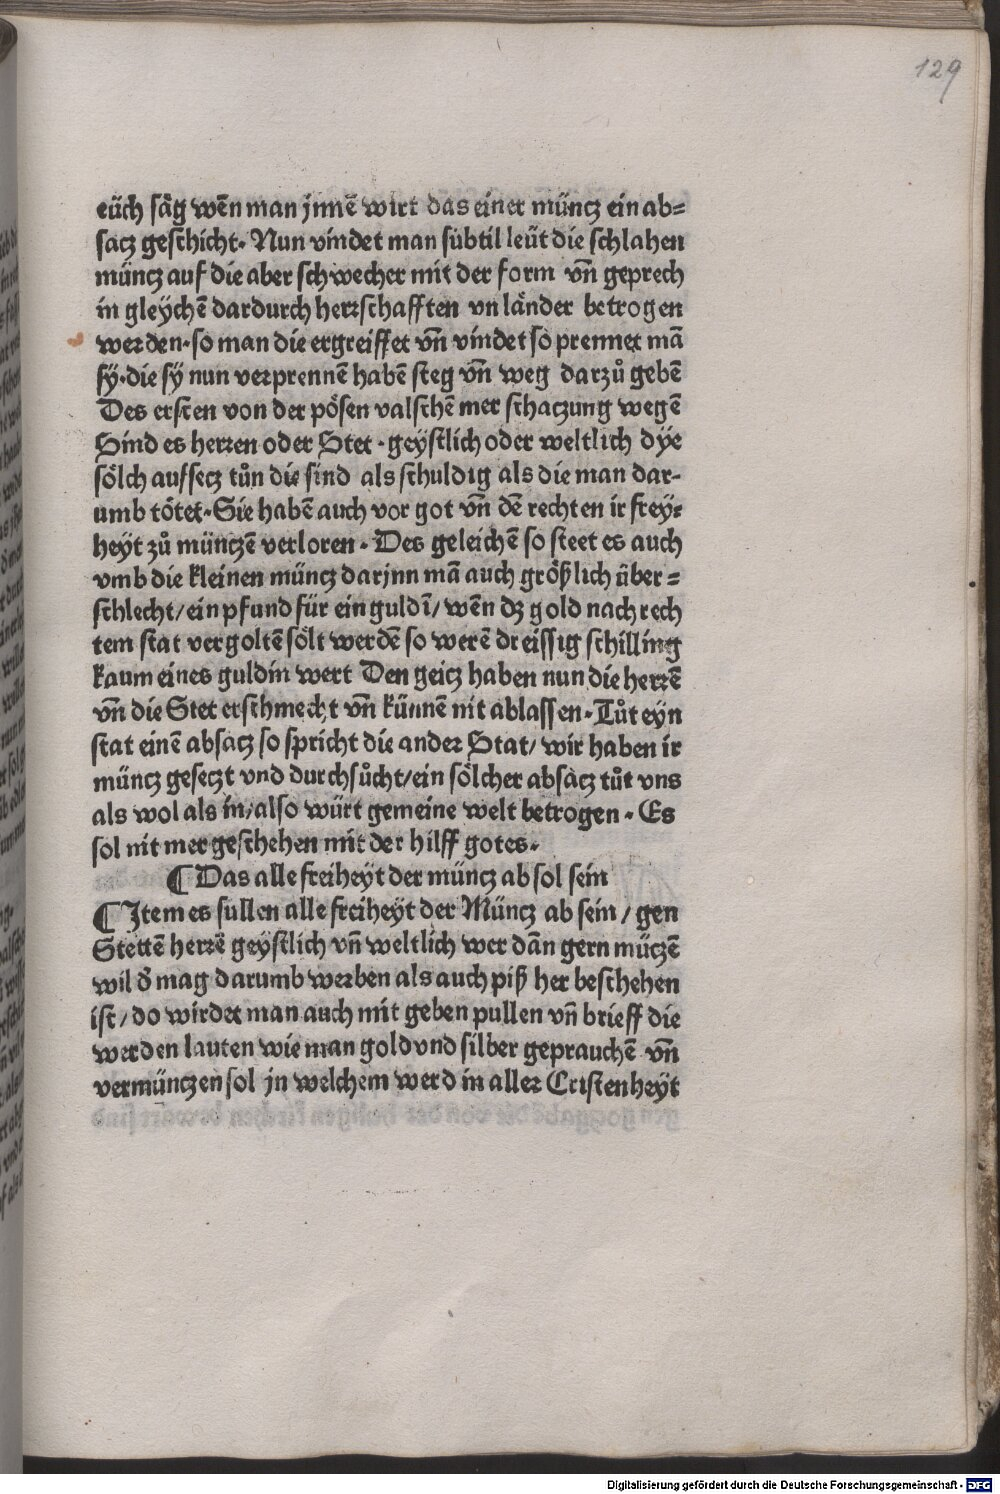 129
eüch säg wēn man jnnē wirt das einer müncz ein ab=
sacz geschicht. Nun vindet man subtil leüt die schlahen
müncz auf die aber schwecher mit der form vn̄ geprech
in gleychē dardurch herrschafften vn länder betrogen
werden. so man die ergreiffet vn̄ vindet so prennet mā
sy. die sy nun verprennē habē steg vn̄ weg darzů gebē
Des ersten von der pösen valschē mer schaczung wegē
Sind es herren oder Stet. geystlich oder weltlich dye
sölch aufsecz tůn die sind als schuldig als die man dar-
umb tötet. Sie habē auch vor got vn̄ dē rechten ir frey=
heyt zů münczē verloren. Des geleichē so steet es auch
vmb die kleinen müncz darjnn mā auch größlich über=
schlecht/ ein pfund für ein guldī/ wēn dz gold nach rech
tem stat vergoltē sölt werdē so werē dreissig schilling
kaum eines guldin wert Den geicz haben nun die herrē
vn̄ die Stet erschmecht vn̄ künnē nit ablassen. Tůt eyn
stat einē absacz so spricht die ander Stat/ wir haben ir
müncz geseczt vnd durchsůcht/ ein sölcher absacz tůt vns
als wol als in/ also würt gemeine welt betrogen. Es
sol nit mer geschehen mit der hilff gotes.
¶ Das alle freiheyt der müncz ab sol sein
¶ Item es sullen alle freiheyt der Müncz ab sein/ gen
Stettē herrē geystlich vn̄ weltlich wer dān gern müczē
wil d̄ mag darumb werben als auch piß her beschehen
ist/ do wirdet man auch mit geben pullen vn̄ brieff die
werden lauten wie man gold vnd silber geprauchē vn̄
vermünczen sol jn welchem werd in aller Cristenheyt
Digitalisierung gefördert durch die Deutsche Forschungsgemeinschaft - DFG